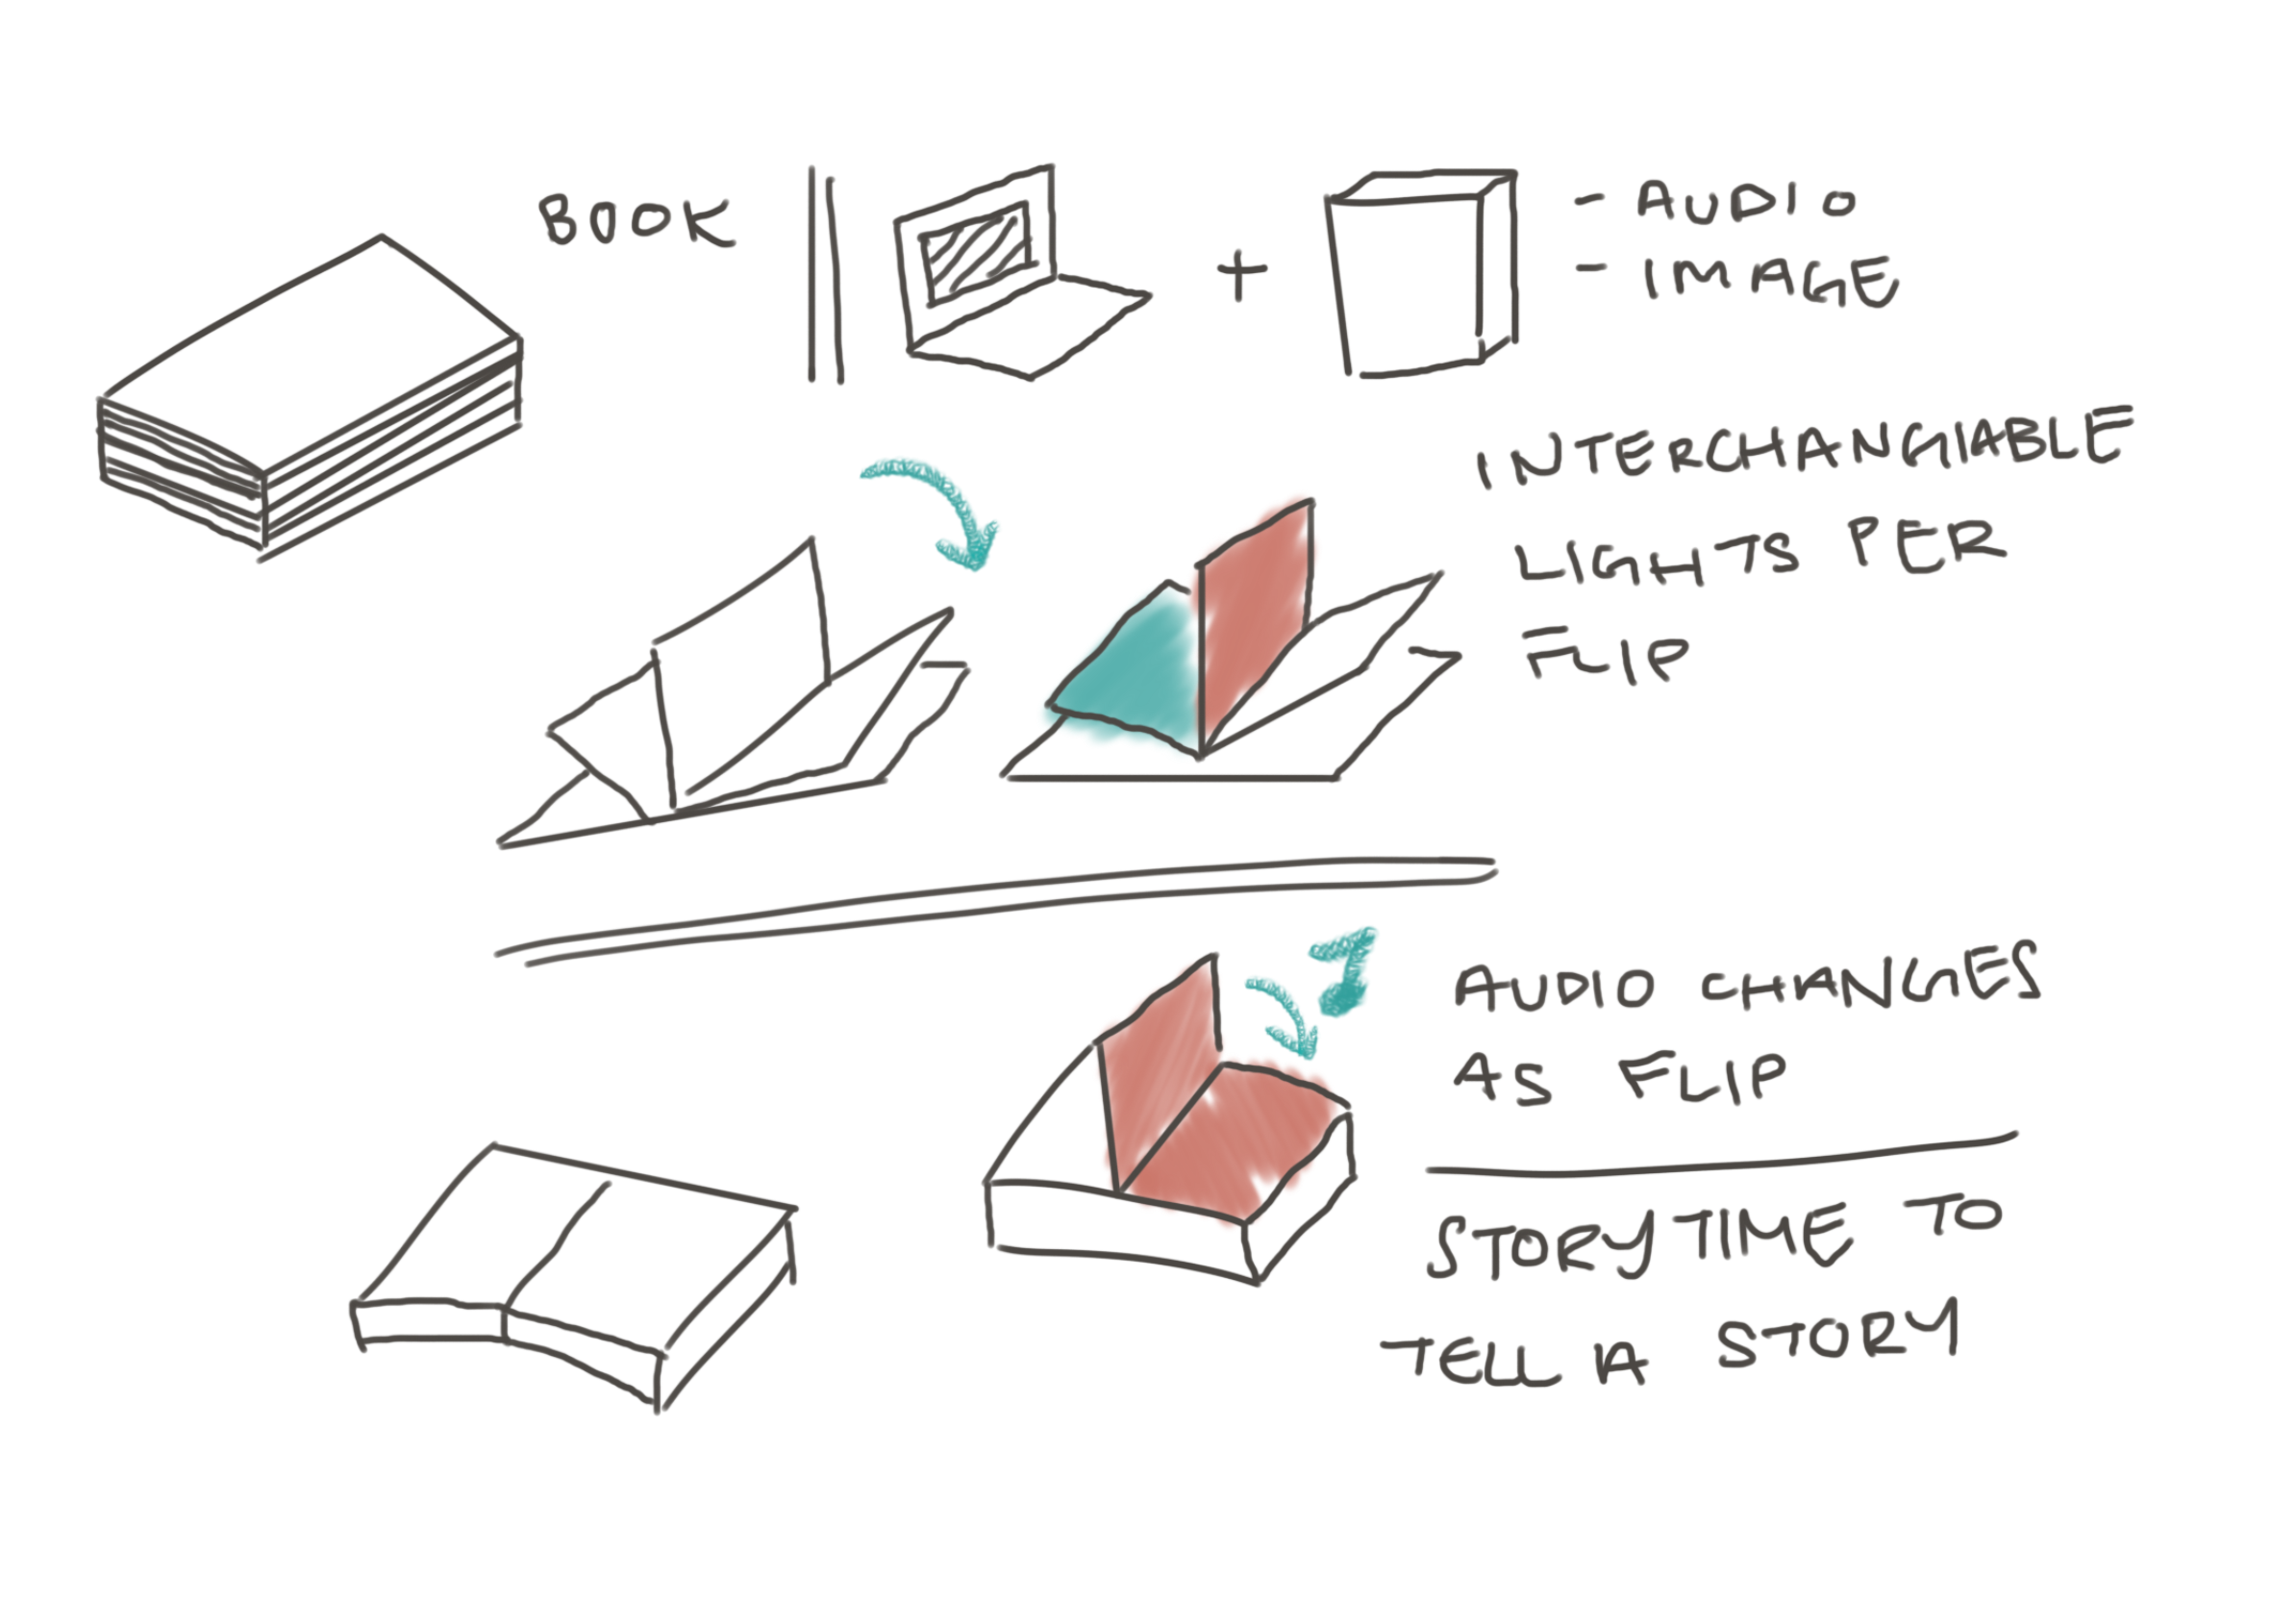 BOOK
+
- AUDIO
- IMAGE
INTERCHANGIABLE
LIGHTS PER
FLIP
AUDIO CHANGES
AS FLIP
STORYTIME TO
TELL A STORY